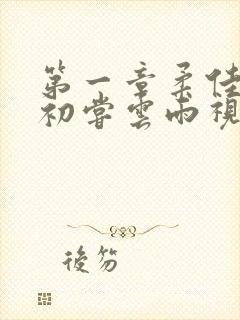 第一章柔佳
初尝雲雨視
後笏